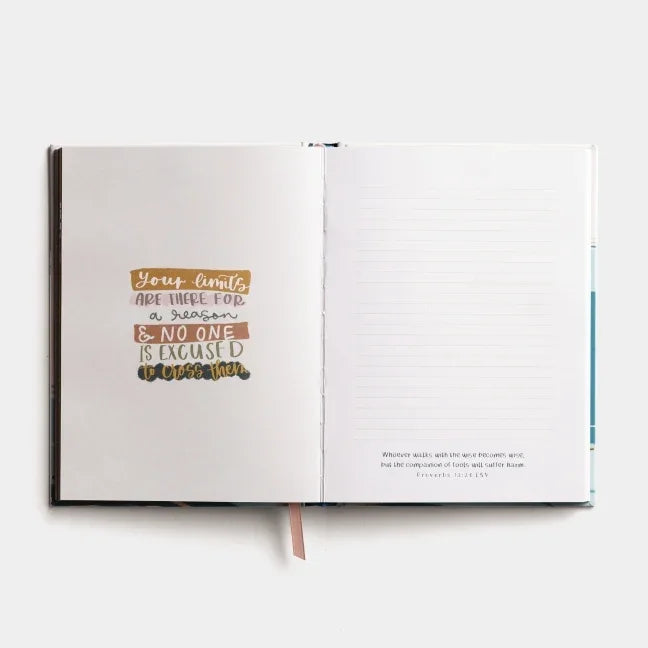 your limits
ARE THERE FOR
a reason
& NO ONE
IS EXCUSED
to cross them
Whoever walks with the wise becomes wise,
but the companion of fools will suffer harm.
Proverbs 13:20 ESV